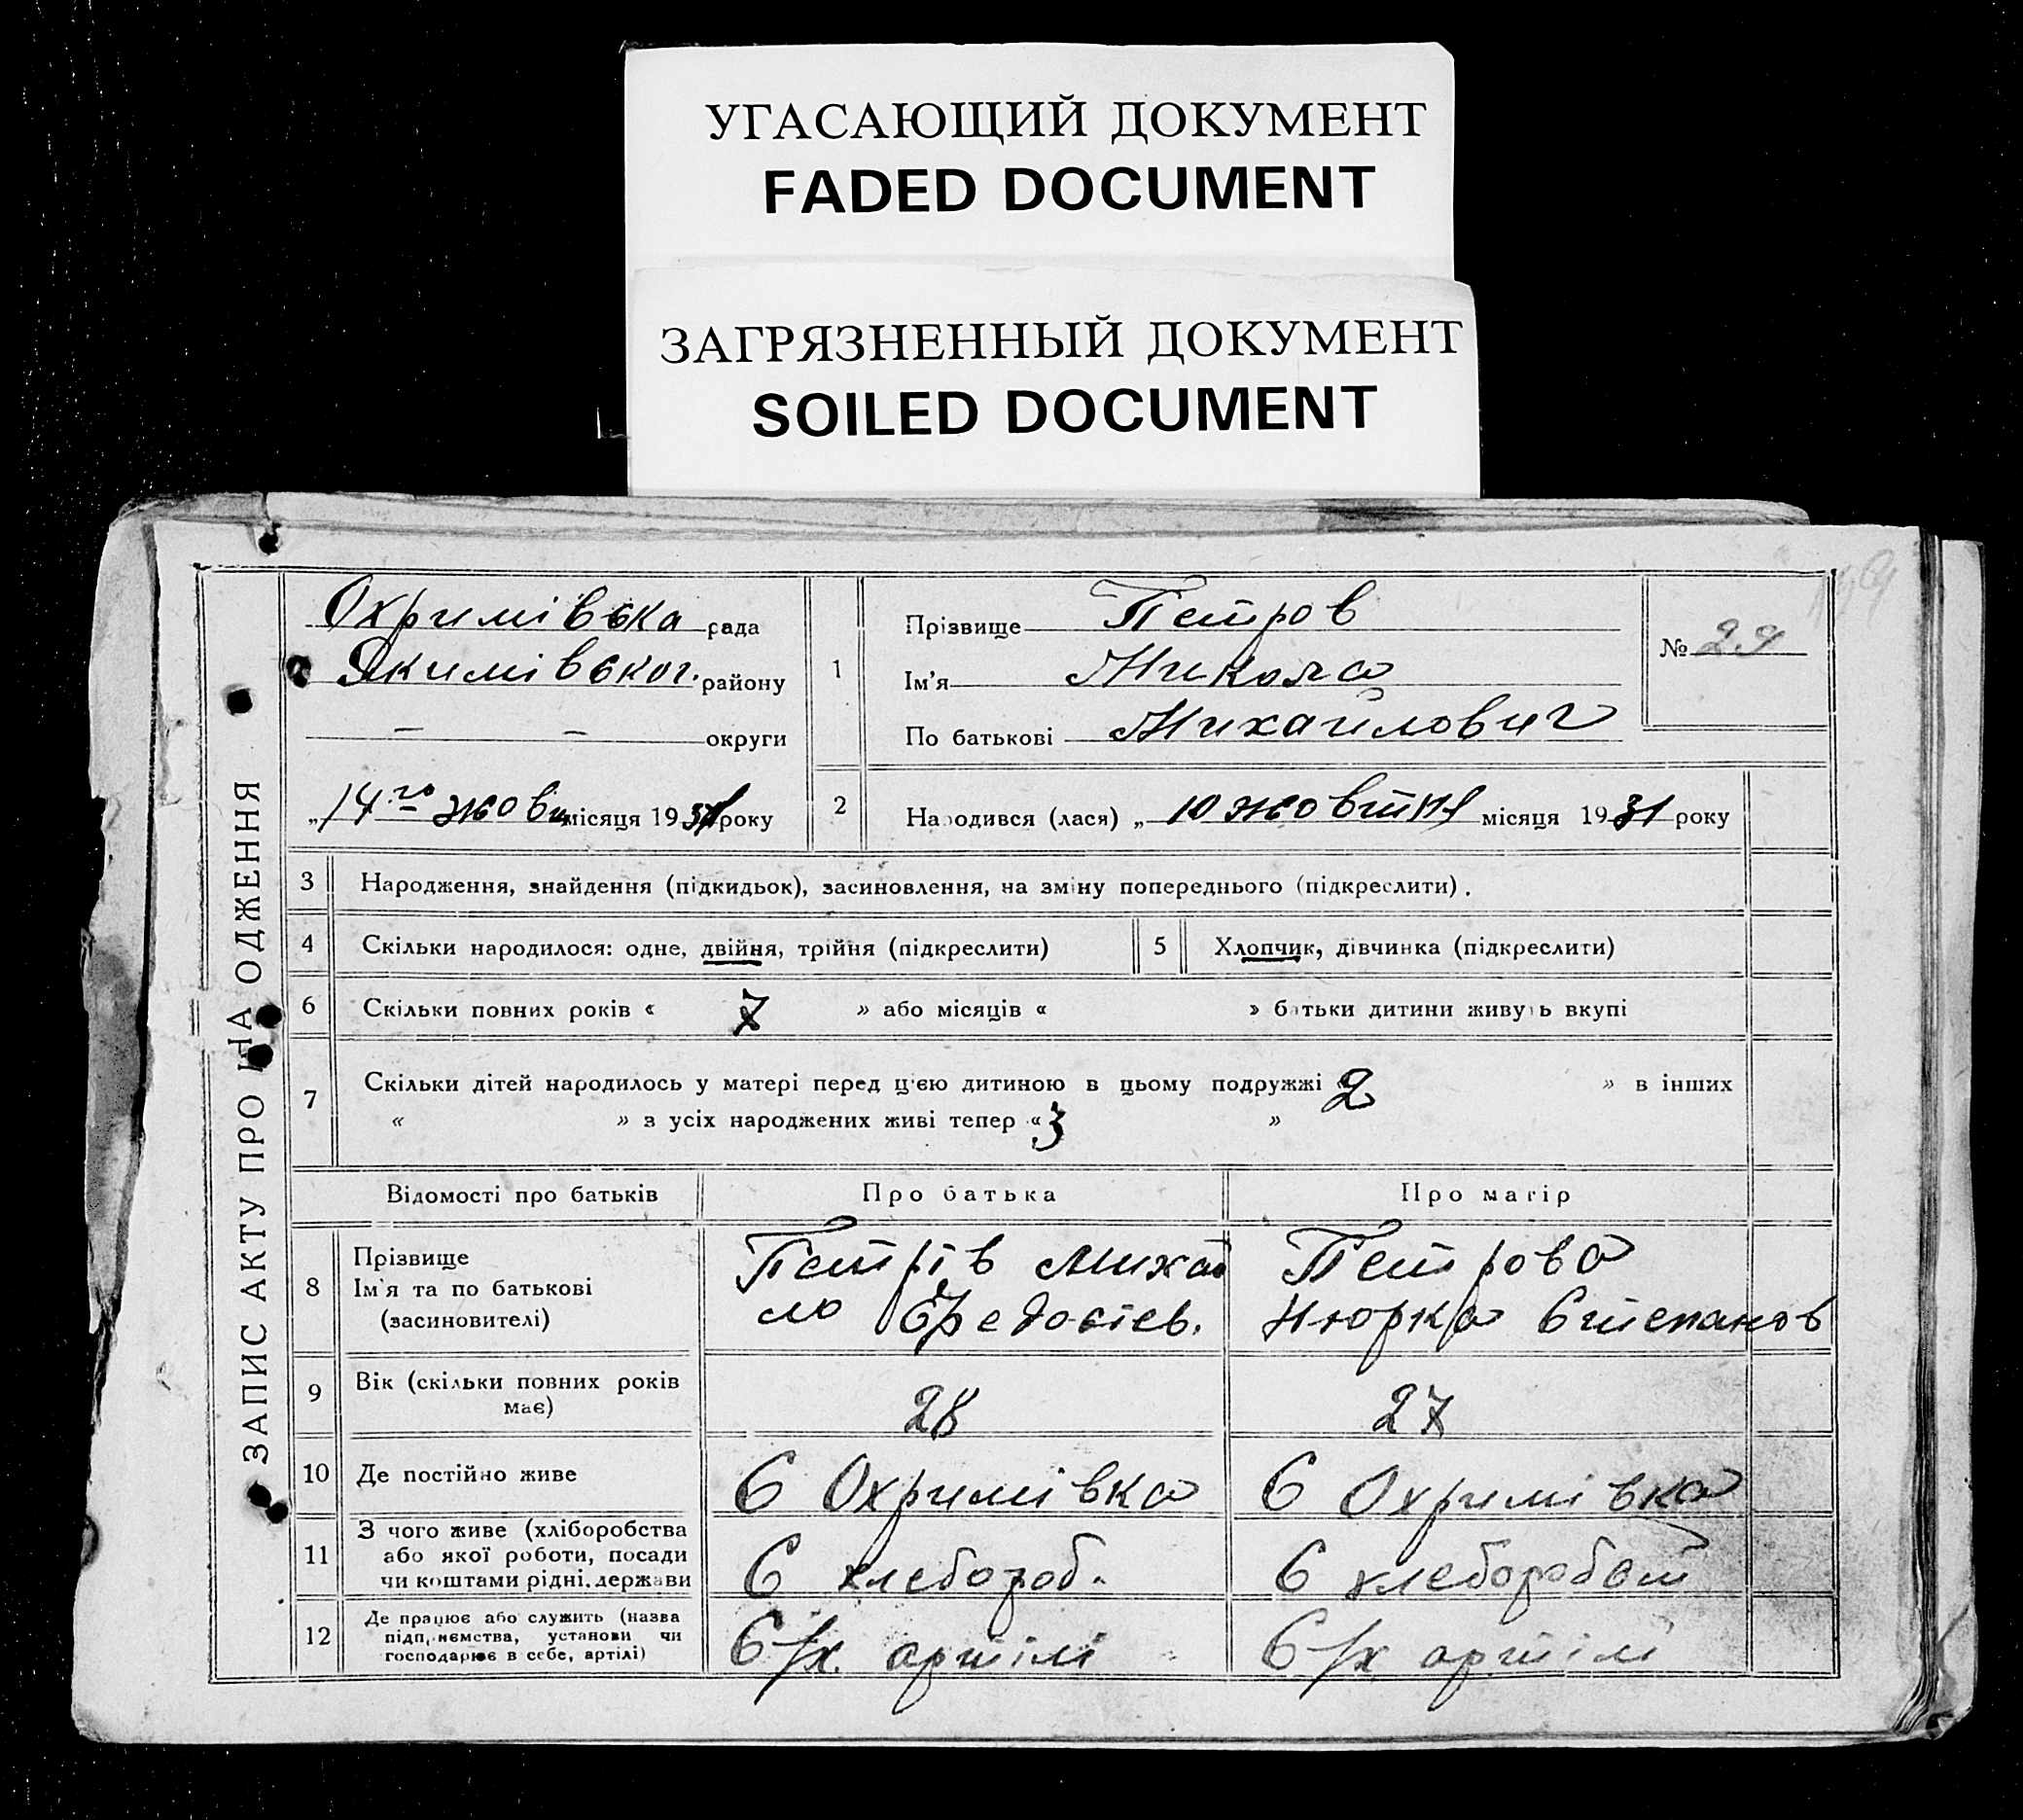 УГАСАЮЩИЙ ДОКУМЕНТ
FADED DOCUMENT
ЗАГРЯЗНЕННЫЙ ДОКУМЕНТ
SOILED DOCUMENT
ЗАПИС АКТУ ПРО НАРОДЖЕННЯ
Охримівська рада
Якимівськог. району
— — округи
„14го жовтн місяця 1931 року
1
Прізвище Петров
Ім'я Микола
По батькові Михайлович
№ 29
2 Народився (лася) „ 10 жовтня місяця 1931 року
3 Народження, знайдення (підкидьок), засиновлення, на зміну попереднього (підкреслити).
4 Скільки народилося: одне, двійня, трійня (підкреслити)
5 Хлопчик, дівчинка (підкреслити)
6 Скільки повних років « 7 » або місяців « » батьки дитини живуть вкупі
7 Скільки дітей народилось у матері перед цією дитиною в цьому подружжі « 2 » в інших
« » з усіх народжених живі тепер « 3 »
Відомості про батьків Про батька Про матір
8
Прізвище
Ім'я та по батькові
(засиновителі)
Петрів Михай
ло Федосієв.
Петрова
Нюрка Степанов
9 Вік (скільки повних років
має)
28 27
10 Де постійно живе С Охримівка С Охримівка
11
З чого живе (хліборобства
або якої роботи, посади
чи коштами рідні, держави
С хлебороб. С хлеборобст
12
Де працює або служить (назва
підприємства, установи чи
господарює в себе, артілі)
С/х. артілі С/х артілі